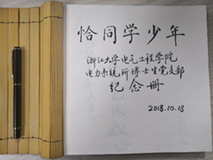 恰同学少年
浙江大学电气工程学院
电力系统所博士生党支部
纪念册
2018.10.18